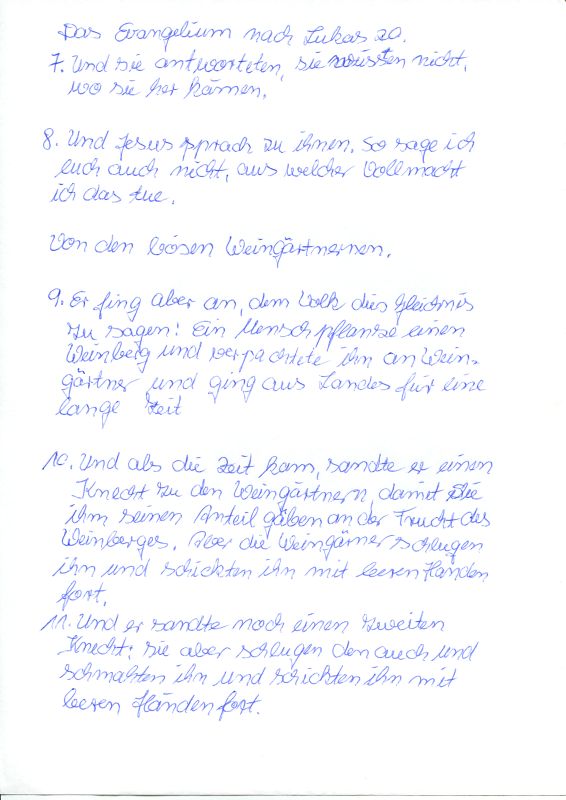 Das Evangelium nach Lukas 20.
7. Und sie antworteten, sie wüssten nicht,
wo sie her kämen.
8. Und Jesus sprach zu ihnen. So sage ich
euch auch nicht, aus welcher Vollmacht
ich das tue.
Von den bösen Weingärtnernen.
9. Er fing aber an, dem Volk dies Gleichnis
zu sagen: Ein Mensch pflanze einen
Weinberg und verpachtete ihn an Wein-
gärtner und ging aus Landes für eine
lange Zeit
10. Und als die Zeit kam, sandte er einen
Knecht zu den Weingärtnern, damit sie
ihm seinen Anteil gäben an der Frucht des
Weinberges. Aber die Weingärner schlugen
ihn und schickten ihn mit leeren Händen
fort.
11. Und er sandte noch einen zweiten
Knecht; sie aber schlugen den auch und
schmahten ihn und schickten ihn mit
leeren Händen fort.